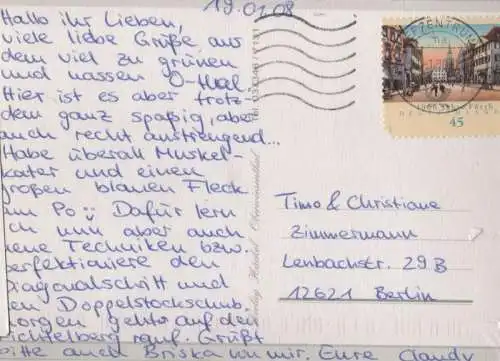 19.01.08
Hallo ihr Lieben,
viele liebe Grüße aus
dem viel zu grünen
und nassen O-thal
Hier ist es aber trotz-
dem ganz spaßig, aber
auch recht anstrengend...
Habe überall Muskel-
kater und einen
großen blauen Fleck
am Po Dafür lern
ich nun aber auch
neue Techniken bzw.
perfektioniere den
Diagonalschritt und
den Doppelstockschub.
Morgen gehts auf den
Fichtelberg rauf. Grüßt
bitte auch Briska von mir. Eure
Timo & Christiane
Zimmermann
Lenbachstr. 29B
12621 Berlin
45